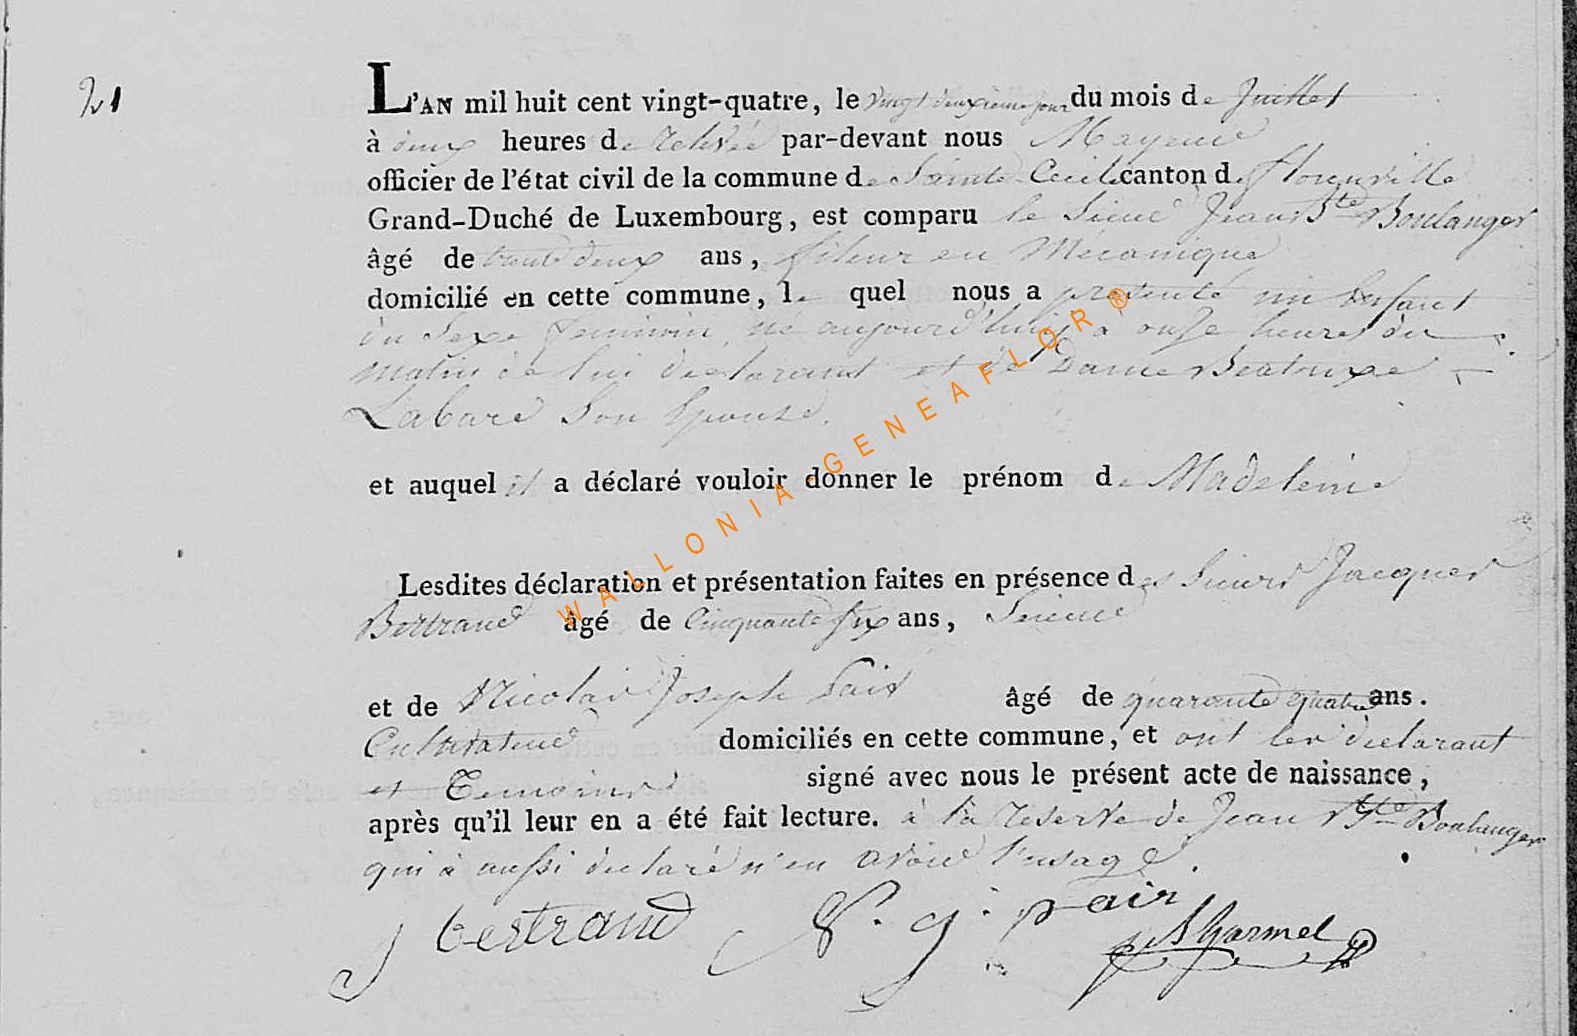 21
L'AN mil huit cent vingt-quatre, le vingt deuxieme jour du mois de Juillet
à deux heures de relevée par-devant nous Mayeur
officier de l'état civil de la commune de Sainte Cecile canton de florenville
Grand-Duché de Luxembourg, est comparu le Sieur Jean Bte Boulanger
âgé de trente deux ans, fileur en Mécanique
domicilié en cette commune, le quel nous a présenté un Enfant
du Sexe feminin, né aujourd'hui à onze heures du
matin de lui declarant et de Dame Beatrixe
Labare Son Epouse.
et auquel il a déclaré vouloir donner le prénom de Madeleine
Lesdites déclaration et présentation faites en présence des Sieurs Jacques
Bertrand âgé de Cinquante six ans,
et de Nicolas Joseph Pair âgé de quarante quatre ans.
Cultivateur domiciliés en cette commune, et ont les declarant
et Temoins signé avec nous le présent acte de naissance,
après qu'il leur en a été fait lecture. à la reserve de Jean Bte Boulanger
qui à aussi declaré n'en avoir l'usage.
J bertrand N. j. pair
WALLONIA-GENEAFLOR®